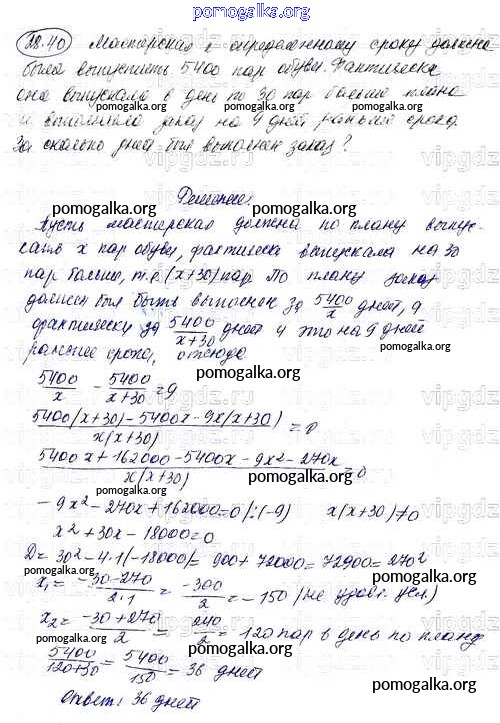 pomogalka.org
28.40) Мастерская к определенному сроку должна
была выпустить 5400 пар обуви. Фактически
она выпускала в день по 30 пар больше плана
и выполнила заказ на 9 дней раньше срока.
За сколько дней был выполнен заказ?
Решение:
pomogalka.org
Пусть мастерская должна по плану выпус-
кать x пар обуви, фактически выпускала на 30
пар больше, т.е. (x+30) пар. По плану заказ
должен был быть выполнен за 5400/x дней, а
фактически за 5400/(x+30) дней и это на 9 дней
раньше срока, отсюда
5400/x - 5400/(x+30) = 9
pomogalka.org
(5400(x+30) - 5400x - 9x(x+30))/(x(x+30)) = 0
(5400x + 162000 - 5400x - 9x² - 270x)/(x(x+30)) = 0
pomogalka.org
-9x² - 270x + 162000 = 0 /:(-9) x(x+30) ≠ 0
x² + 30x - 18000 = 0
D = 30² - 4·1·(-18000) = 900 + 72000 = 72900 = 270²
x₁ = (-30-270)/(2·1) = -300/2 = -150 (не удовл. усл.)
pomogalka.org
x₂ = (-30+270)/2 = 240/2 = 120 пар в день по плану
pomogalka.org
5400/(120+30) = 5400/150 = 36 дней
pomogalka.org
Ответ: 36 дней